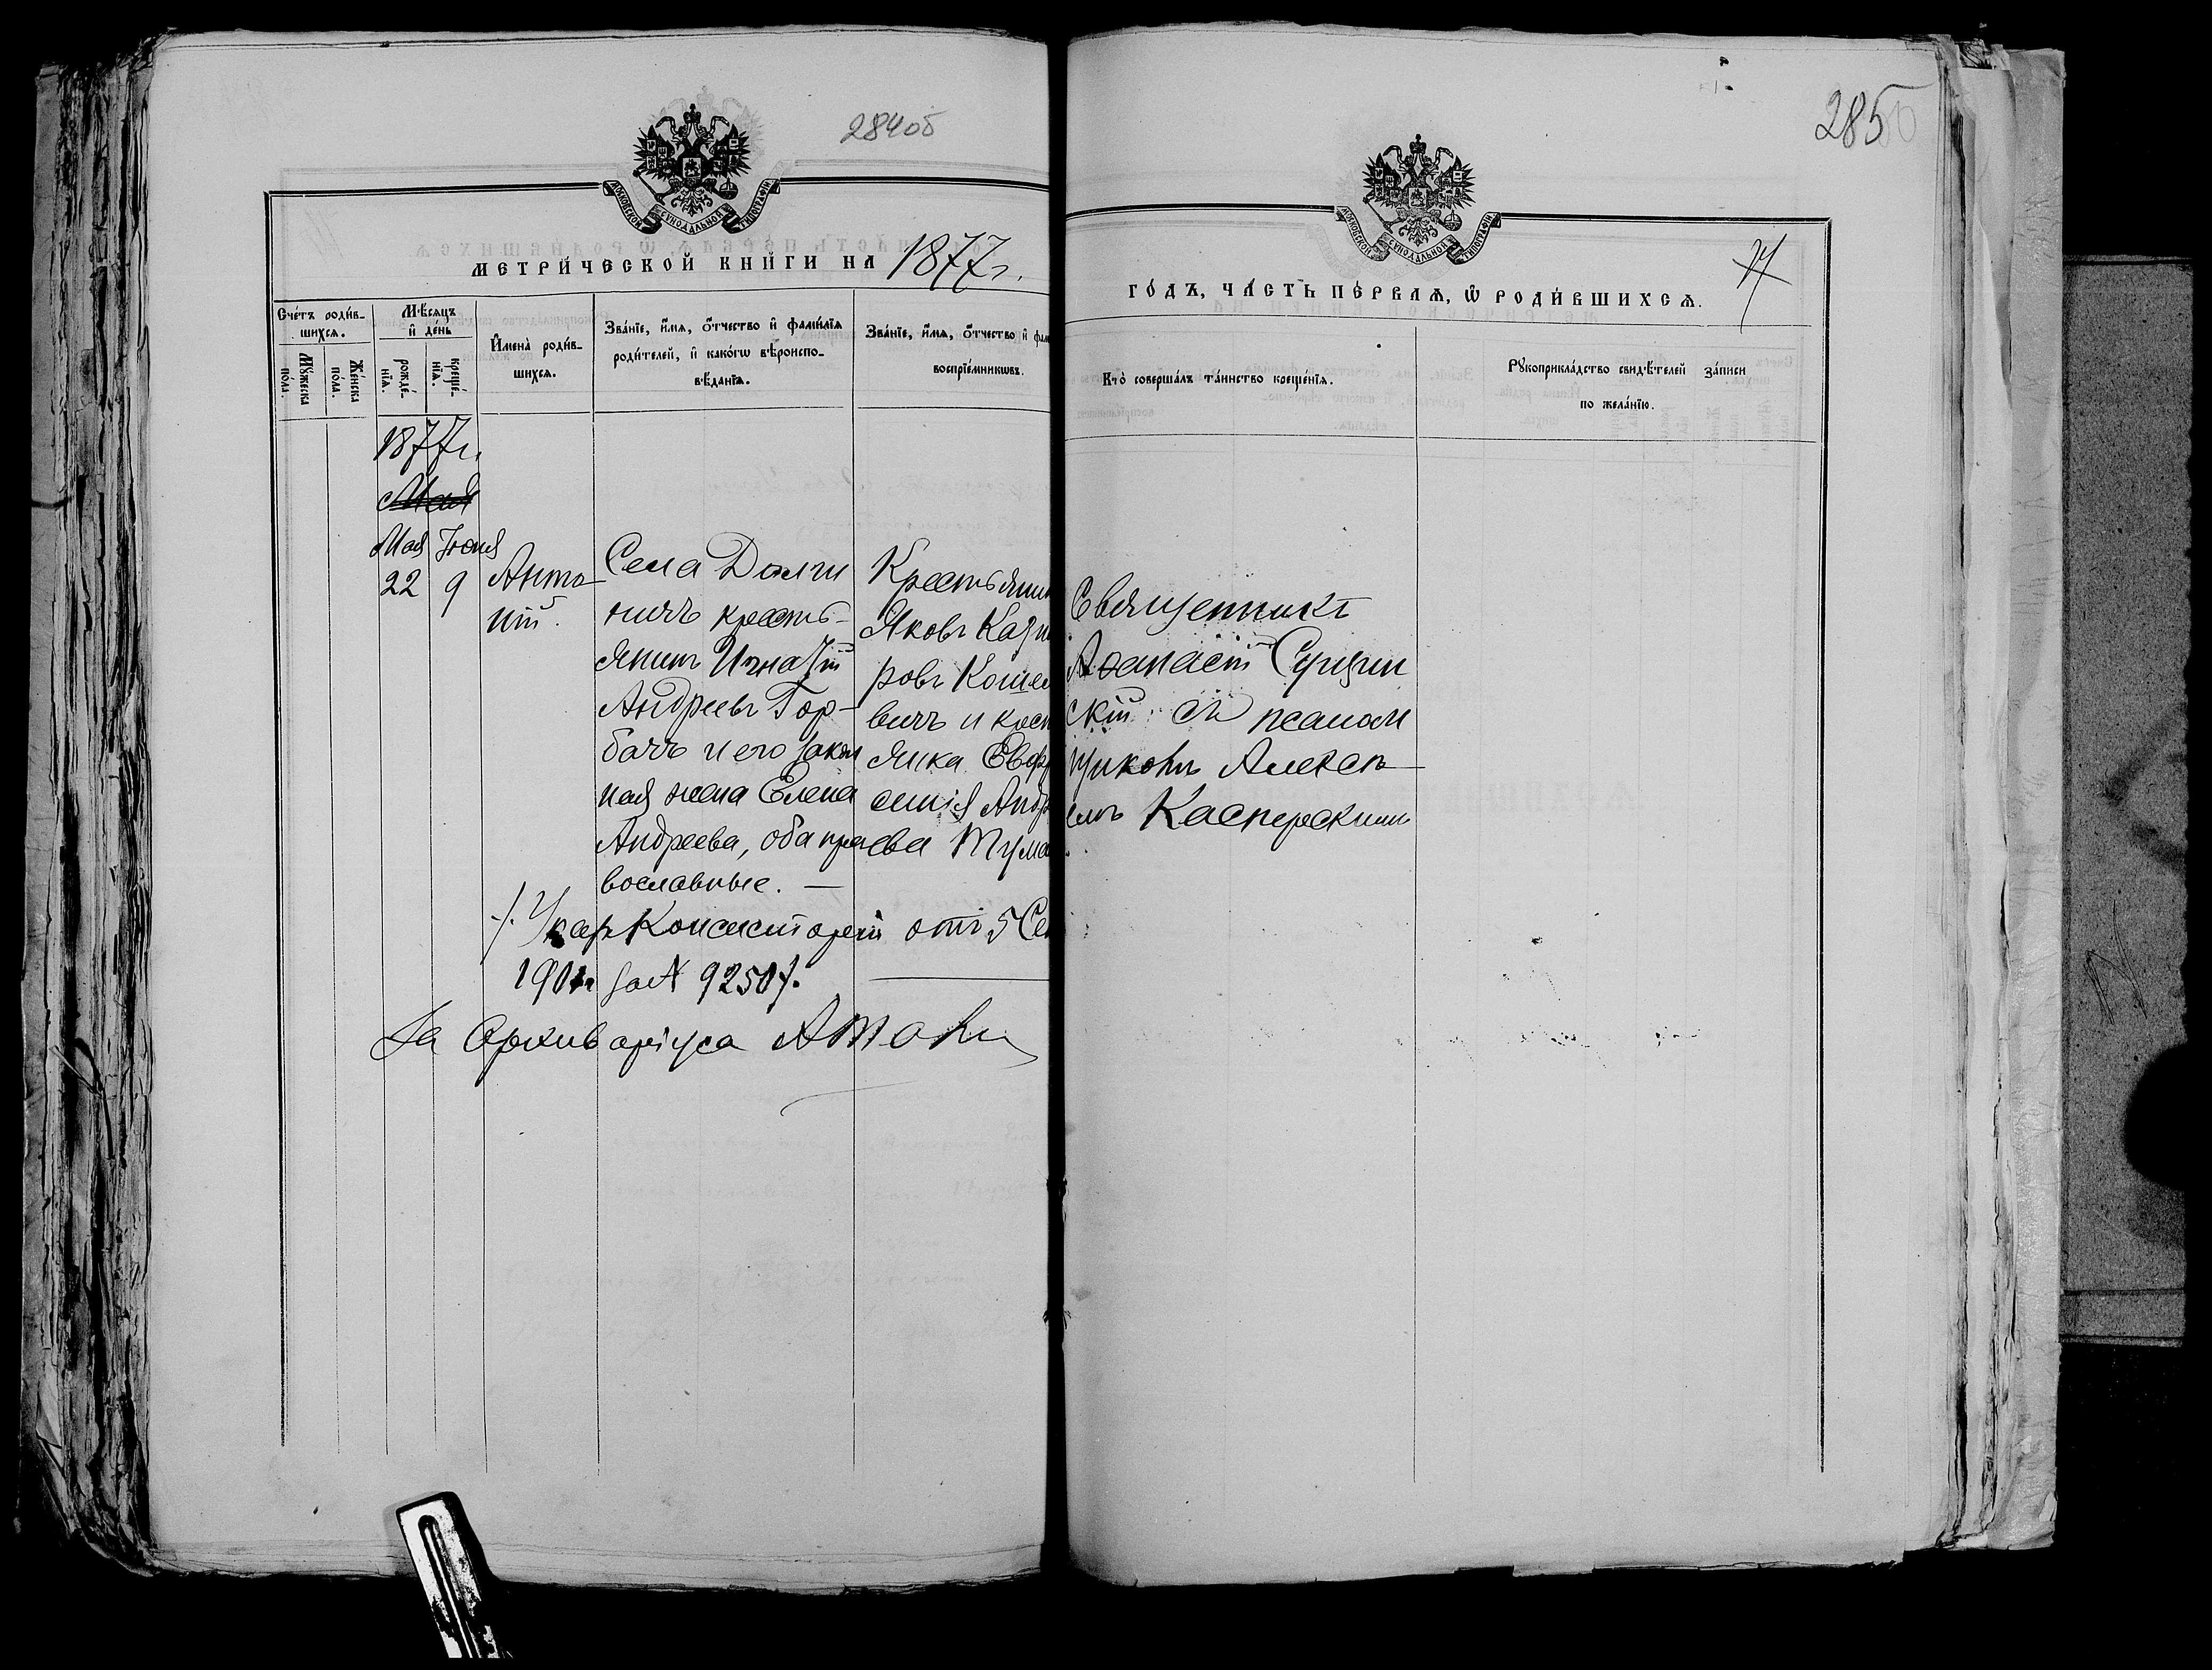 284об
МОСКОВСКОЙ СУНОДАЛЬНОЙ ТИПОГРАФІИ
МЕТРИ́ЧЕСКОЙ КНИ́ГИ НА 1877 г.
Сче́тъ роди́в-
шихся.
Мѣ́сяцъ
и҆ де́нь
Му́жеска
по́ла.
Же́нска
по́ла.
рожде́-
нїя.
креще́-
нїя.
И҆мена̀ роди́в-
шихся.
Зва́нїе, и҆́мя, ѻ҆́тчество и҆ фами́лїя
роди́телей, и҆ како́гѡ вѣроиспо-
вѣ́данїя.
Зва́нїе, и҆́мя, ѻ҆́тчество и҆ фам
воспрїе́мникѡвъ.
1877 г.
Мая
Мая Іюня
22 9
Анто-
ній.
Села Долги
ничъ кресть-
янинъ Игнатій
Андреевъ Гор-
бачъ и его закон
ная жена Елена
Андреева, оба пра
вославные. —
Крестьянин
Яковъ Кази
ровъ Коше
вичъ и крест
янка Евфр
синія Андр
еева Тума
Указъ Консисторіи отъ 5 Се
1901 г за № 9250
За Архиваріуса
285
МОСКОВСКОЙ СУНОДАЛЬНОЙ ТИПОГРАФІИ
ГО́ДЪ, ЧА́СТЬ ПЕ́РВАЯ, Ѡ҆ РОДИ́ВШИХСЯ.
Кто̀ соверша́лъ та́инство креще́нїя.
Рукоприкла́дство свидѣ́телей за́писи
по жела́нїю.
Священникъ
Аѳанасій
скій съ псалом
щикомъ Алексѣ-
емъ Касперскимъ